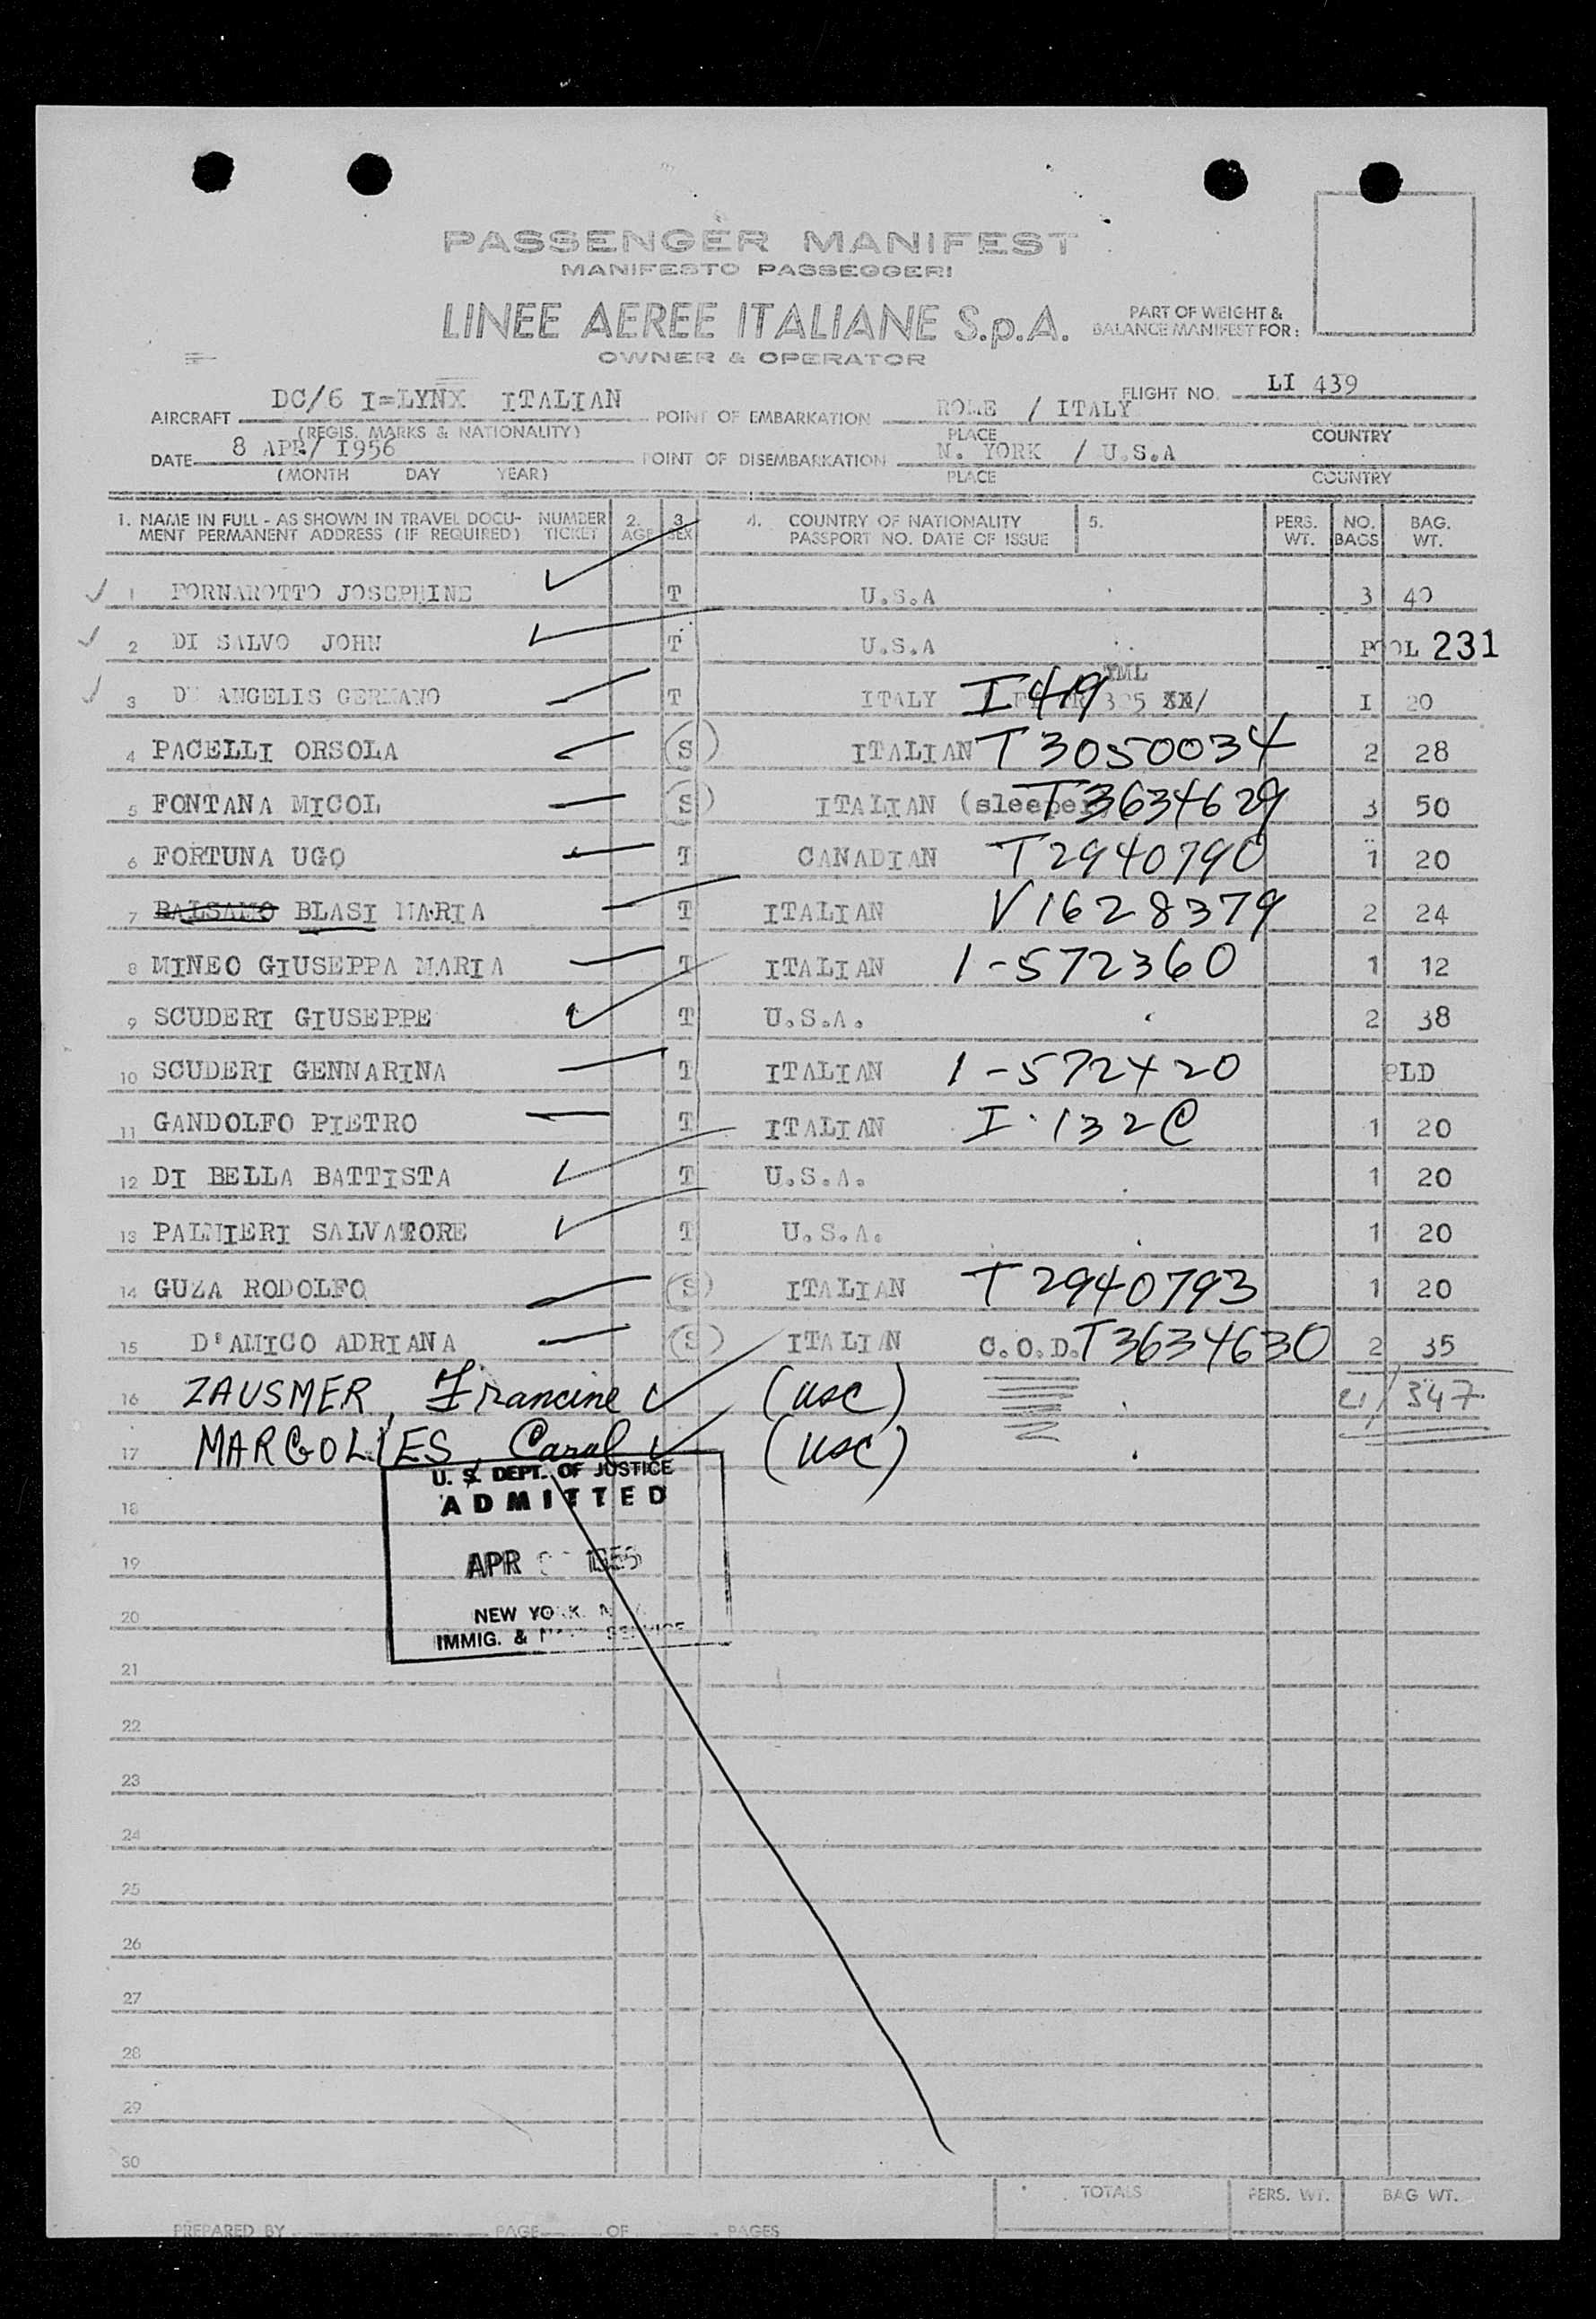 PASSENGER MANIFEST
MANIFESTO PASSEGGERI
LINEE AEREE ITALIANE S.p.A.
OWNER & OPERATOR
PART OF WEIGHT &
BALANCE MANIFEST FOR:
AIRCRAFT DC/6 I=LYNX ITALIAN POINT OF EMBARKATION ROME / ITALY FLIGHT NO. LI 439
(REGIS. MARKS & NATIONALITY) PLACE COUNTRY
DATE 8 APR/ 1956 POINT OF DISEMBARKATION N. YORK / U.S.A
(MONTH DAY YEAR) PLACE COUNTRY
1. NAME IN FULL - AS SHOWN IN TRAVEL DOCU- NUMBER 2. 3. 4. COUNTRY OF NATIONALITY 5. PERS. NO. BAG.
MENT PERMANENT ADDRESS (IF REQUIRED) TICKET AGE SEX PASSPORT NO. DATE OF ISSUE WT. BAGS WT.
1 FORNAROTTO JOSEPHINE T U.S.A 3 40
2 DI SALVO JOHN T U.S.A POOL 231
3 D' ANGELIS GERMANO T ITALY I 419 I 20
4 PACELLI ORSOLA (S) ITALIAN T3050034 2 28
5 FONTANA MICOL (S) ITALIAN (sleeper) T3634629 3 50
6 FORTUNA UGO T CANADIAN T2940790 1 20
7 BALSAMO BLASI MARIA T ITALIAN V1628379 2 24
8 MINEO GIUSEPPA MARIA T ITALIAN 1-572360 1 12
9 SCUDERI GIUSEPPE T U.S.A. 2 38
10 SCUDERI GENNARINA T ITALIAN 1-572420 PLD
11 GANDOLFO PIETRO T ITALIAN I-132@ 1 20
12 DI BELLA BATTISTA T U.S.A. 1 20
13 PALMIERI SALVATORE T U.S.A. 1 20
14 GUZA RODOLFO (S) ITALIAN T2940793 1 20
15 D'AMICO ADRIANA (S) ITALIAN C.O.D. T3634630 2 35
16 ZAUSMER, Francine (USC) 21/ 347
17 MARGOLIES, Carol (USC)
U. S. DEPT. OF JUSTICE
18 ADMITTED
19 APR 1956
20 NEW YORK, N.Y.
IMMIG. & NAT. SERVICE
21
22
23
24
25
26
27
28
29
30
TOTALS PERS. WT. BAG WT.
PREPARED BY PAGE OF PAGES